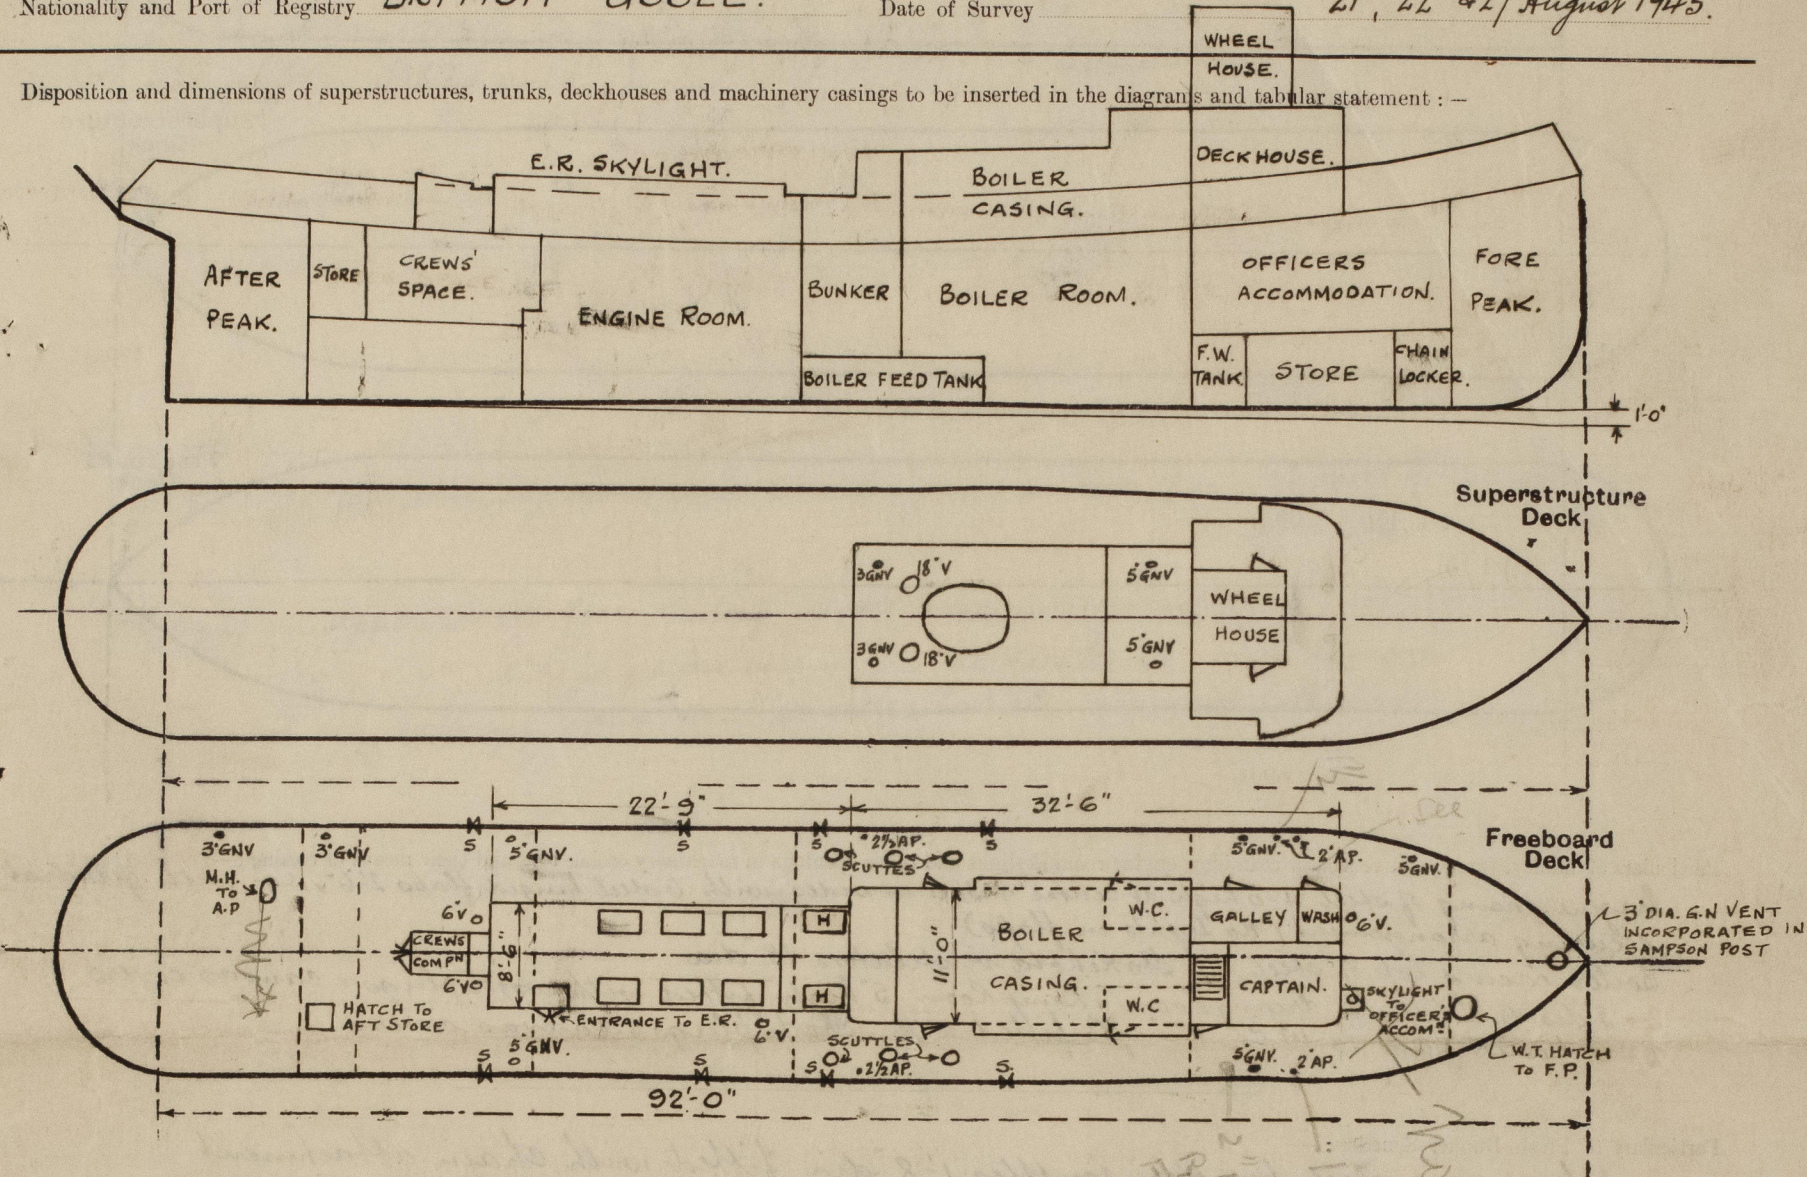 Nationality and Port of Registry
Date of Survey
21, 22 & 27 August 1945.
Disposition and dimensions of superstructures, trunks, deckhouses and machinery casings to be inserted in the diagrams and tabular statement : —
WHEEL
HOUSE.
DECKHOUSE.
E.R. SKYLIGHT.
BOILER
CASING.
AFTER
PEAK.
STORE
CREWS'
SPACE.
ENGINE ROOM.
BUNKER
BOILER ROOM.
BOILER FEED TANK
OFFICERS
ACCOMMODATION.
FORE
PEAK.
F.W.
TANK
STORE
CHAIN
LOCKER.
1'-0"
Superstructure
Deck
3"GNV
18"V
5"GNV
WHEEL
HOUSE
3"GNV
18"V
5"GNV
22'-9"
32'-6"
Freeboard
Deck
3"GNV
3"GNV
S
5"GNV.
S
S
2½"AP.
SCUTTES
S
5"GNV.
2"AP.
3"GNV.
M.H.
TO
A.P
6"V
CREWS
COMPN
6"V
8'-6"
H
H
11'-0"
BOILER
CASING.
W.C.
W.C
GALLEY
WASH
6"V.
CAPTAIN.
SKYLIGHT
TO
OFFICER'S
ACCOMN
3" DIA. G.N VENT
INCORPORATED IN
SAMPSON POST
HATCH TO
AFT STORE
ENTRANCE TO E.R.
6"V.
S
5"GNV.
S
S
SCUTTLES
2½"AP.
S.
5"GNV.
2"AP.
W.T. HATCH
TO F.P.
92'-0"